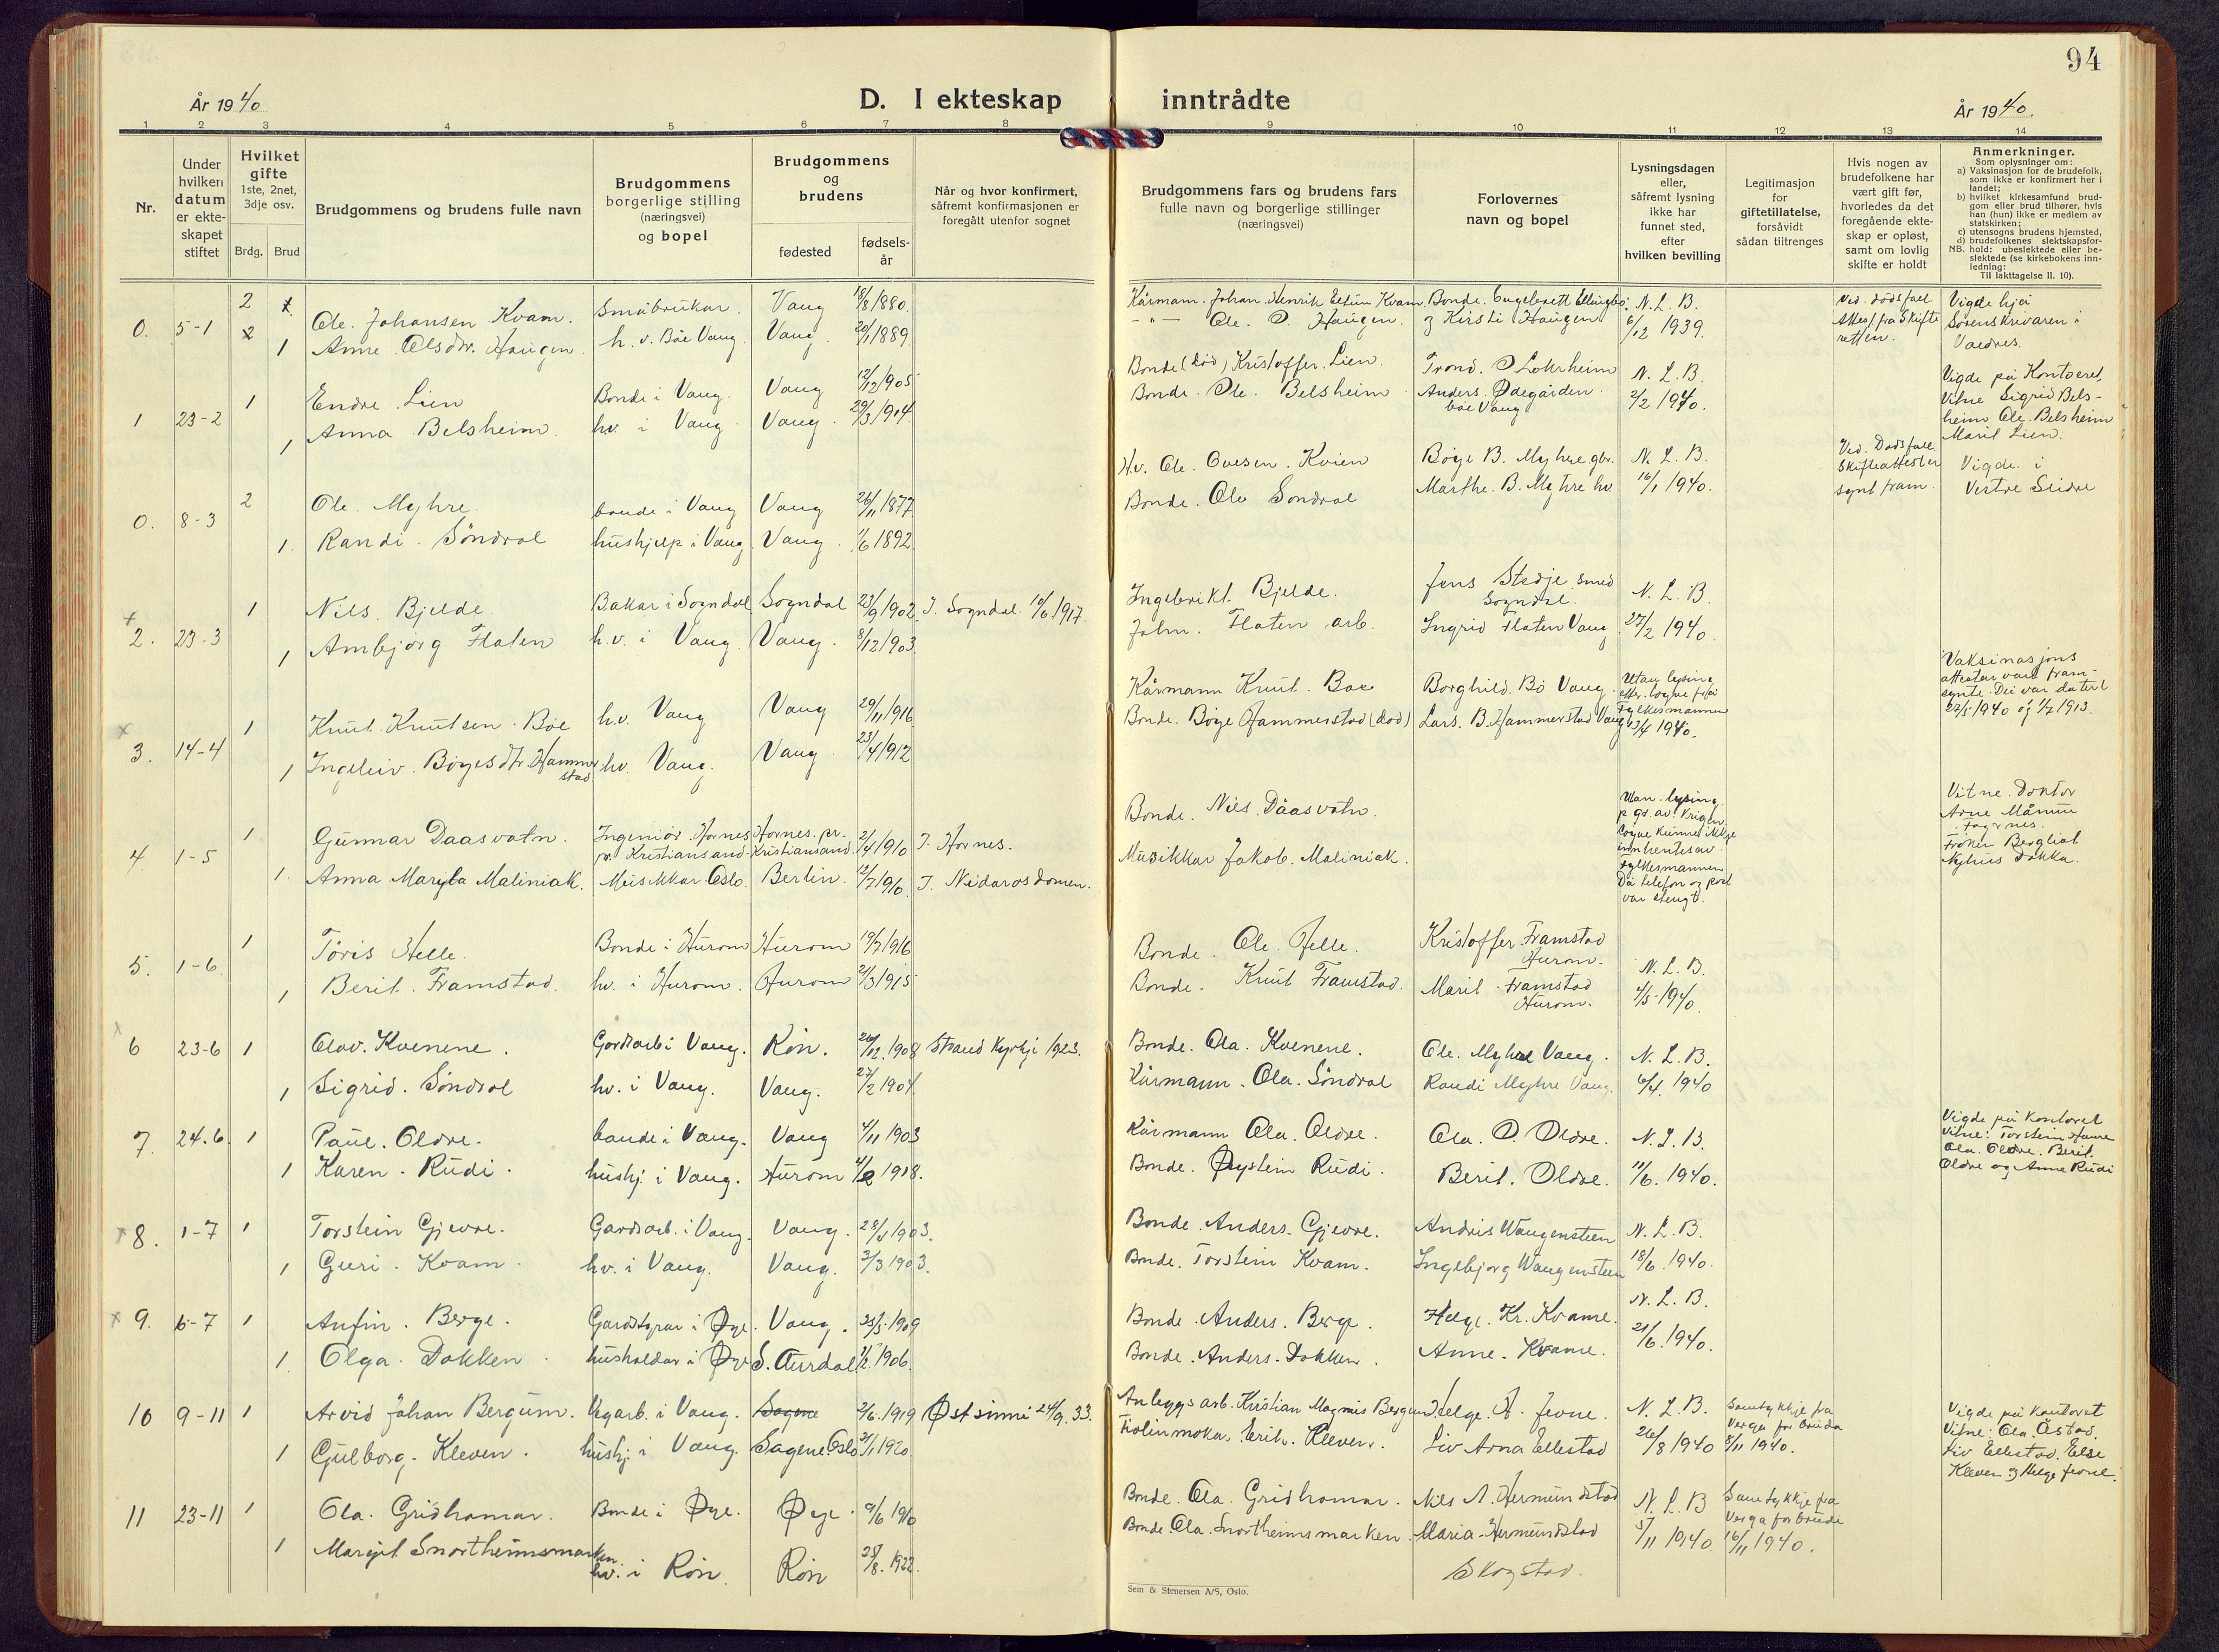 94
År 1940
D. I ekteskap inntrådte
År 1940.
1 2 3 4 5 6 7 8 9 10 11 12 13 14
Nr.
Under
hvilken
datum
er ekte-
skapet
stiftet
Hvilket
gifte
1ste, 2net,
3dje osv.
Brdg. Brud
Brudgommens og brudens fulle navn
Brudgommens
borgerlige stilling
(næringsvei)
og bopel
Brudgommens
og
brudens
fødested
fødsels-
år
Når og hvor konfirmert,
såfremt konfirmasjonen er
foregått utenfor sognet
Brudgommens fars og brudens fars
fulle navn og borgerlige stillinger
(næringsvei)
Forlovernes
navn og bopel
Lysningsdagen
eller,
såfremt lysning
ikke har
funnet sted,
efter
hvilken bevilling
Legitimasjon
for
giftetillatelse,
forsåvidt
sådan tiltrenges
Hvis nogen av
brudefolkene har
vært gift før,
hvorledes da det
foregående ekte-
skap er opløst,
samt om lovlig
skifte er holdt
Anmerkninger.
Som oplysninger om:
a) Vaksinasjon for de brudefolk,
som ikke er konfirmert her i
landet;
b) hvilket kirkesamfund brud-
gom eller brud tilhører, hvis
han (hun) ikke er medlem av
statskirken;
c) utensogns brudens hjemsted,
d) brudefolkenes slektskapsfor-
NB. hold: ubeslektede eller be-
slektede (se kirkebokens inn-
ledning:
Til iakttagelse II. 10).
0. 5-1 2 Ole. Johansen Kvam. Småbrukar. Vang 18/8 1880. Kårmann. Johan. Henrik Kvam. Bonde. N. L. B. Ved. dødsfall Vigde hjå
1 Anne Olsdtr. Haugen h. v. Bøe Vang Vang. 20/1 1889. -"- Ole. O. Haugen. og Kirsti Haugen 6/12 1939. Attest fra Skifte Sorenskrivaren i
retten. Valdres.
1 23-2 1 Endre. Lien Bonde i Vang. Vang 12/12 1905 Bonde (død) Kristoffer. Lien. Trond. O Lohrheim N. L. B. Vigde på Kontoret,
1 Anna. Belsheim. hv i Vang. Vang. 29/3 1914. Bonde. Ole. Belsheim Anders. Ødegården. 2/2 1940. Vitne Sigrid Bels-
bøe Vang heim Ole. Belsheim
Marit Lien.
0. 8-3 2 Ole. Myhre. bonde i Vang Vang 26/11 1877 Hv. Ole. Ovesen. Kvien Børge B. Myhre gbr. N. L. B. Ved. Dødsfall Vigde. i
1. Randi. Søndrol hushjelp i Vang Vang. 1/6 1892 Bonde. Ole Søndrol Marthe. B. Myhre hv 16/1 1940. Skifteattester Vestre Slidre
synt fram.
2. 23-3 1 Nils. Bjelde. Bakar i Sogndal Sogndal 23/9 1902 I. Sogndal 10/6 1917. Ingebrikt. Bjelde. Jens Stedje smed N. L. B.
Sogndal.
1 Ambjørg Flaten h.v. i Vang Vang. 8/12 1903 John. Flaten arb. Ingrid Flaten Vang 27/2 1940.
3. 14-4 1 Knut. Knutsen. Bøe h.v. Vang Vang 29/11 1916 Kårmann Knut. Boe Borghild. Bö Vang. Utan lysing Vaksinasjons
etter. løyve frå attestar vart fram
1 Ingeleiv. Børgesdtr. Hammer hv. Vang. Vang 23/4 1912 Bonde. Børge Hammerstad (død) Lars. B. Hammerstad Vang Fylkesmannen synte. Dei var datert
stad 13/4 1940. 27/5 1940 og 1/7 1913.
4. 1-5 1 Gunnar Daasvatn. Ingeniør. Hornes Hornes. pr. 2/4 1910 I. Hornes. Bonde. Nils. Dåasvatn. Utan. lysing Vitne. Doktor
pr. Kristiansand. Kristiansand. p. gr. av. krigen. Arne Månum
1. Anna Maryla Maliniak. Musikkar Oslo. Berlin. 12/7 1910. I. Nidarosdomen. Musikkar Jakob. Maliniak. Løyve kunne ikkje Fagernes.
innhentes av Frøken Bergliot
Fylkesmannen Nyhus Dokka.
Då telefon og post
var stengt.
5. 1-6. 1 Toris Helle. Bonde i Hurom Hurom 19/7 1916 Bonde. Ole. Helle. Kristoffer. Framstad N. L. B.
Hurom.
1 Berit. Framstad. hv. i Hurom. Hurom 21/3 1915 Bonde. Knut Framstad. Marit Framstad 4/5-1940.
Hurom.
6 23-6 1 Olav. Kvenene. Gardsarb i Vang. Røn. 20/12. 1908 Strand Kyrkje 1923. Bonde. Ola. Kvenene. Ole. Myhre Vang. N. L. B.
1 Sigrid. Søndrol hv. i Vang. Vang. 27/2 1904. Kårmann. Ola. Søndrol Randi Myhre Vang. 6/4. 1940
7. 24.6. 1 Paul. Oldre. bonde i Vang. Vang 4/11 1903 Kårmann Ola. Oldre. Ola. O. Oldre. N. L. B. Vigde på Kontoret
1 Karen. Rudi. hushj. i Vang. Hurom 1918. Bonde. Øystein Rudi. Berit. Oldre. 11/6. 1940. Vitne: Torstein
Ola. Oldre. Berit.
Oldre og Anne Rudi
8. 1-7 1 Torstein Gjevre. Gardsarb. i Vang. Vang. 1903. Bonde. Anders. Gjevre. Andris Wangensteen N. L. B.
1 Guri. Kvam. hv. i Vang. Vang. 3/3 1903. Bonde. Torstein Kvam. Ingebjørg Wangensteen 18/6. 1940.
9. 6-7 1 Anfin. Berge. i Øye. Vang. 25/5. 1909 Bonde. Anders. Berge. Helge. Kr. Kvame. N. L. B.
1. Olga. Dokken. husholdar i Øye S. Aurdal 1906. Bonde. Anders. Dokken. Anne. Kvame. 21/6. 1940.
10 9-11 1 Arvid Johan Bergum. Vegarb. i Vang. Sagene 2/6. 1919 Østsinni 24/9. 33. Anleggsarb. Kristian Magnus Bergum Helge. A. Jevne. N. L. B. Samtykkje fra Vigde på kontoret
Verga for bruda Vitne: Ola. Åstad.
1 Gulborg. Kleven. hushj. i Vang. Sagene Oslo 31/1 1920. Erik. Kleven. Liv Arna Ellestad 26/8 1940 8/11 1940. Liv Ellestad. Else
Kleven og Helge Jevne.
11 23-11 1 Ola. Gridhamar. Bonde i Øye. Øye. 9/6 1910 Bonde. Ola. Gridhamar. Nils A. Hermundstad N. L. B Samtykkje fra
Verga for brude
1 Margit Snortheimsmarken. hv. i Røn. Røn 25/8. 1922. Bonde. Ola. Snortheimsmarken. Maria Hermundstad 5/11 1940. 16/11 1940.
Skogstad.
Sem & Stenersen A/S, Oslo.